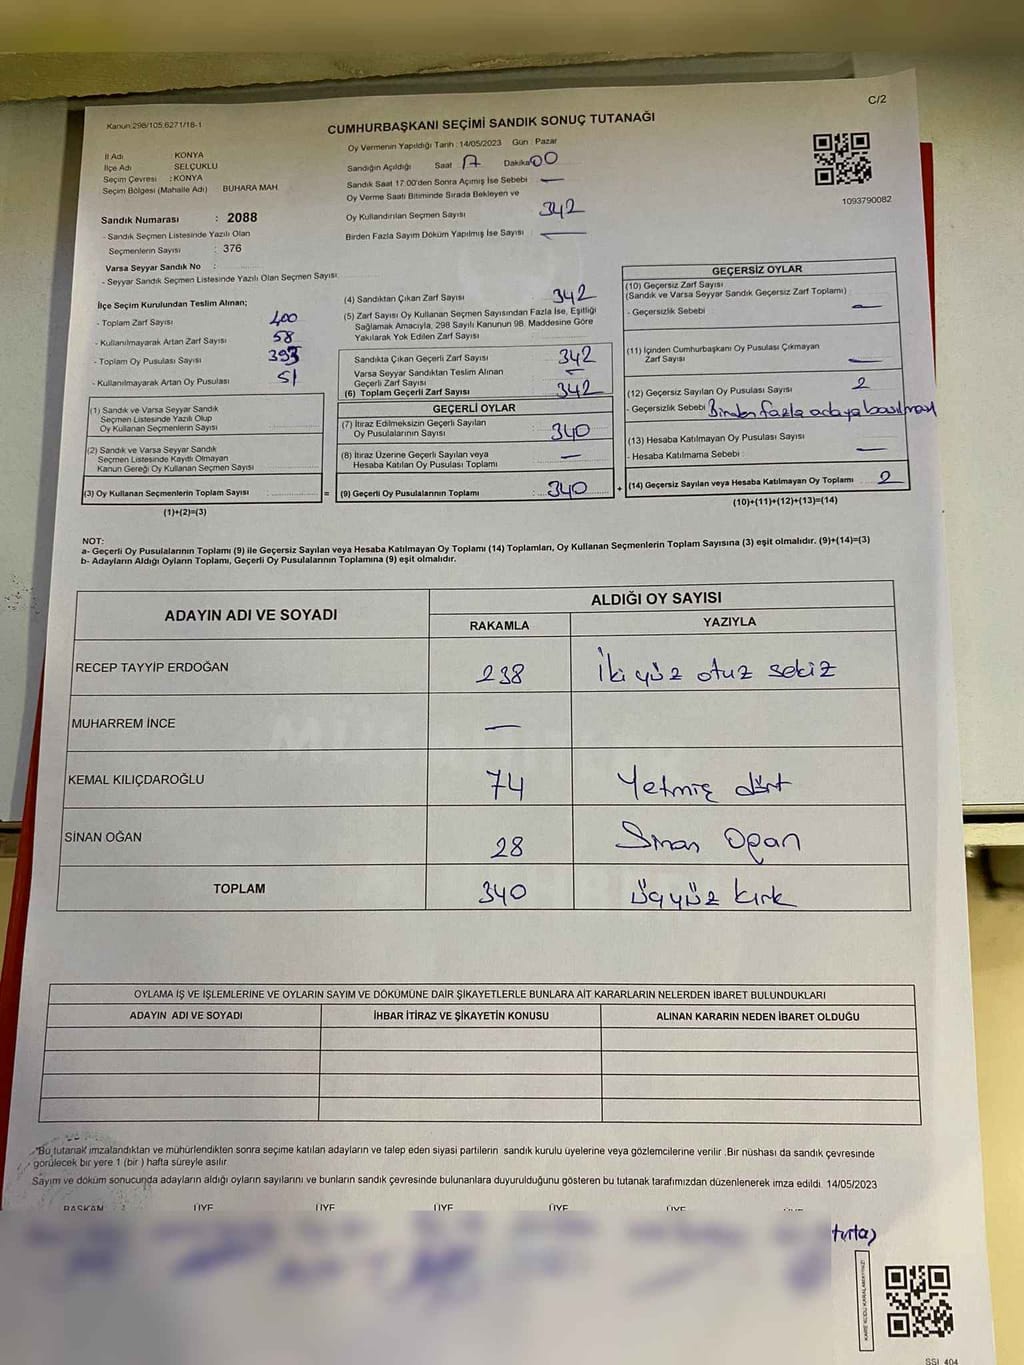 Kanun:298/105,6271/18-1
CUMHURBAŞKANI SEÇİMİ SANDIK SONUÇ TUTANAĞI
C/2
İl Adı : KONYA
İlçe Adı : SELÇUKLU
Seçim Çevresi : KONYA
Seçim Bölgesi (Mahalle Adı) BUHARA MAH.
Oy Vermenin Yapıldığı Tarih : 14/05/2023 Gün : Pazar
Sandığın Açıldığı Saat 17 Dakika 00
Sandık Saat 17:00'den Sonra Açımış İse Sebebi —
Oy Verme Saati Bitiminde Sırada Bekleyen ve
Oy Kullandırılan Seçmen Sayısı 342
Birden Fazla Sayım Döküm Yapılmış İse Sayısı : —
1093790082
Sandık Numarası : 2088
- Sandık Seçmen Listesinde Yazılı Olan
Seçmenlerin Sayısı : 376
Varsa Seyyar Sandık No :
- Seyyar Sandık Seçmen Listesinde Yazılı Olan Seçmen Sayısı:
İlçe Seçim Kurulundan Teslim Alınan;
- Toplam Zarf Sayısı 400
- Kullanılmayarak Artan Zarf Sayısı 58
- Toplam Oy Pusulası Sayısı 393
- Kullanılmayarak Artan Oy Pusulası 51
(1) Sandık ve Varsa Seyyar Sandık
Seçmen Listesinde Yazılı Olup
Oy Kullanan Seçmenlerin Sayısı
(2) Sandık ve Varsa Seyyar Sandık
Seçmen Listesinde Kayıtlı Olmayan
Kanun Gereği Oy Kullanan Seçmen Sayısı
(3) Oy Kullanan Seçmenlerin Toplam Sayısı :
=
(1)+(2)=(3)
(4) Sandıktan Çıkan Zarf Sayısı 342
(5) Zarf Sayısı Oy Kullanan Seçmen Sayısından Fazla İse, Eşitliği
Sağlamak Amacıyla, 298 Sayılı Kanunun 98. Maddesine Göre
Yakılarak Yok Edilen Zarf Sayısı :
Sandıkta Çıkan Geçerli Zarf Sayısı 342
Varsa Seyyar Sandıktan Teslim Alınan
Geçerli Zarf Sayısı —
(6) Toplam Geçerli Zarf Sayısı 342
GEÇERLİ OYLAR
(7) İtiraz Edilmeksizin Geçerli Sayılan
Oy Pusulalarının Sayısı 340
(8) İtiraz Üzerine Geçerli Sayılan veya
Hesaba Katılan Oy Pusulası Toplamı : —
(9) Geçerli Oy Pusulalarının Toplamı : 340
+
GEÇERSİZ OYLAR
(10) Geçersiz Zarf Sayısı
(Sandık ve Varsa Seyyar Sandık Geçersiz Zarf Toplamı) :
- Geçersizlik Sebebi : —
(11) İçinden Cumhurbaşkanı Oy Pusulası Çıkmayan
Zarf Sayısı —
(12) Geçersiz Sayılan Oy Pusulası Sayısı 2
- Geçersizlik Sebebi : Birden fazla adaya basılması
(13) Hesaba Katılmayan Oy Pusulası Sayısı
- Hesaba Katılmama Sebebi : —
(14) Geçersiz Sayılan veya Hesaba Katılmayan Oy Toplamı 2
(10)+(11)+(12)+(13)=(14)
NOT:
a- Geçerli Oy Pusulalarının Toplamı (9) ile Geçersiz Sayılan veya Hesaba Katılmayan Oy Toplamı (14) Toplamları, Oy Kullanan Seçmenlerin Toplam Sayısına (3) eşit olmalıdır. (9)+(14)=(3)
b- Adayların Aldığı Oyların Toplamı, Geçerli Oy Pusulalarının Toplamına (9) eşit olmalıdır.
ADAYIN ADI VE SOYADI
ALDIĞI OY SAYISI
RAKAMLA YAZIYLA
RECEP TAYYİP ERDOĞAN 238 İki yüz otuz sekiz
MUHARREM İNCE —
KEMAL KILIÇDAROĞLU 74 Yetmiş dört
SİNAN OĞAN 28 Sinan Ogan
TOPLAM 340 üçyüz kırk
OYLAMA İŞ VE İŞLEMLERİNE VE OYLARIN SAYIM VE DÖKÜMÜNE DAİR ŞİKAYETLERLE BUNLARA AİT KARARLARIN NELERDEN İBARET BULUNDUKLARI
ADAYIN ADI VE SOYADI İHBAR İTİRAZ VE ŞİKAYETİN KONUSU ALINAN KARARIN NEDEN İBARET OLDUĞU
"Bu tutanak imzalandıktan ve mühürlendikten sonra seçime katılan adayların ve talep eden siyasi partilerin sandık kurulu üyelerine veya gözlemcilerine verilir .Bir nüshası da sandık çevresinde
görülecek bir yere 1 (bir ) hafta süreyle asılır
Sayım ve döküm sonucunda adayların aldığı oyların sayılarını ve bunların sandık çevresinde bulunanlara duyurulduğunu gösteren bu tutanak tarafımızdan düzenlenerek imza edildi. 14/05/2023
BAŞKAN ÜYE ÜYE ÜYE ÜYE ÜYE
KARE KODU KARALAMAYINIZ!
SSİ 404